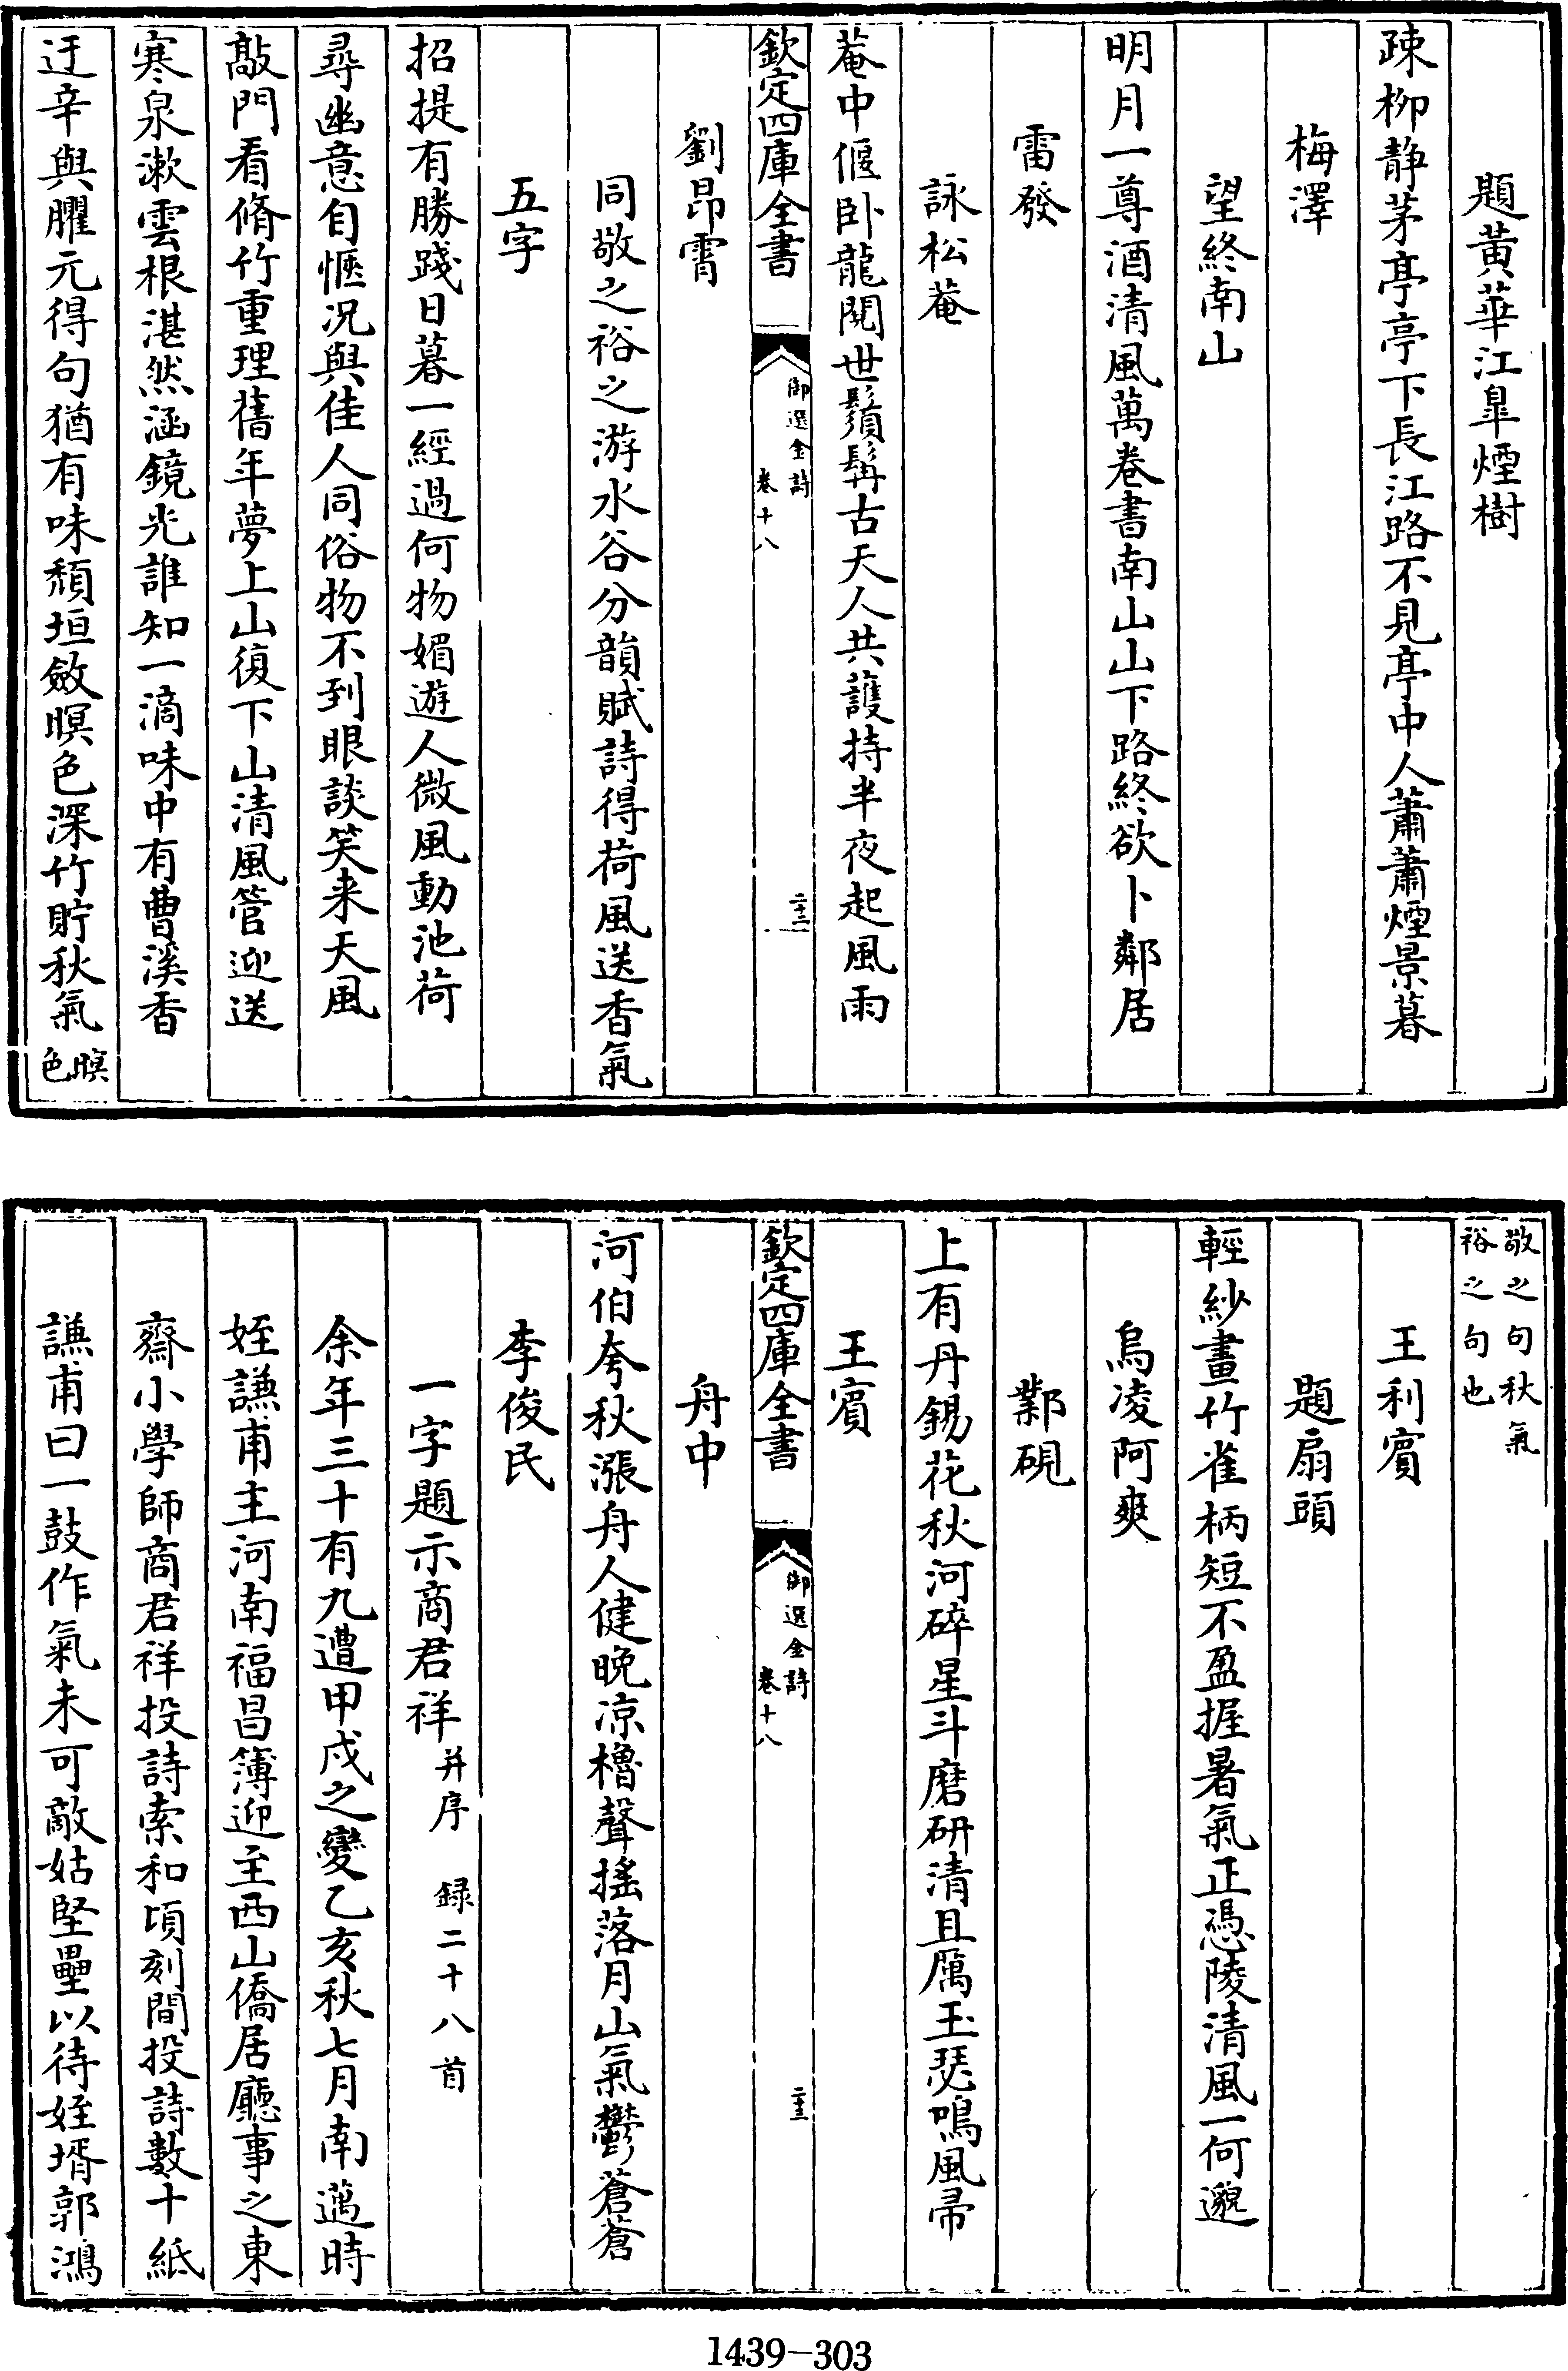 題黄華江臯煙樹
疎栁静茅亭亭下長江路不見亭中人蕭蕭煙景暮
梅澤
望終南山
明月一尊酒清風萬巻書南山山下路終欲卜鄰居
雷發
詠松菴
菴中偃卧龍閲世鬚髯古天人共護持半夜起風雨
欽定四庫全書
御選金詩
巻十八
二十二
劉昂霄
同敬之裕之游水谷分韻賦詩得荷風送香氣
五字
招提有勝踐日暮一經過何物媚遊人微風動池荷
尋幽意自愜况與佳人同俗物不到眼談笑来天風
敲門看脩竹重理舊年夢上山復下山清風管迎送
寒泉漱雲根湛然涵鏡光誰知一滴味中有曹溪香
迂辛與臞元得句猶有味頽垣斂暝色深竹貯秋氣暝
色
敬之句秋氣
裕之句也
王利賓
題扇頭
輕紗畫竹雀柄短不盈握暑氣正憑陵清風一何邈
烏凌阿爽
鄴硯
上有丹錫花秋河碎星斗磨研清且厲玉瑟鳴風帚
王賓
欽定四庫全書
御選金詩
巻十八
二十三
舟中
河伯夸秋漲舟人健晚凉櫓聲揺落月山氣鬱蒼蒼
李俊民
一字題示商君祥并序 録二十八首
余年三十有九遭甲戍之變乙亥秋七月南邁時
姪謙甫主河南福昌簿迎至西山僑居廳事之東
齋小學師商君祥投詩索和頃刻間投詩數十紙
謙甫曰一鼓作氣未可敵姑堅壘以待姪壻郭鴻
1439-303